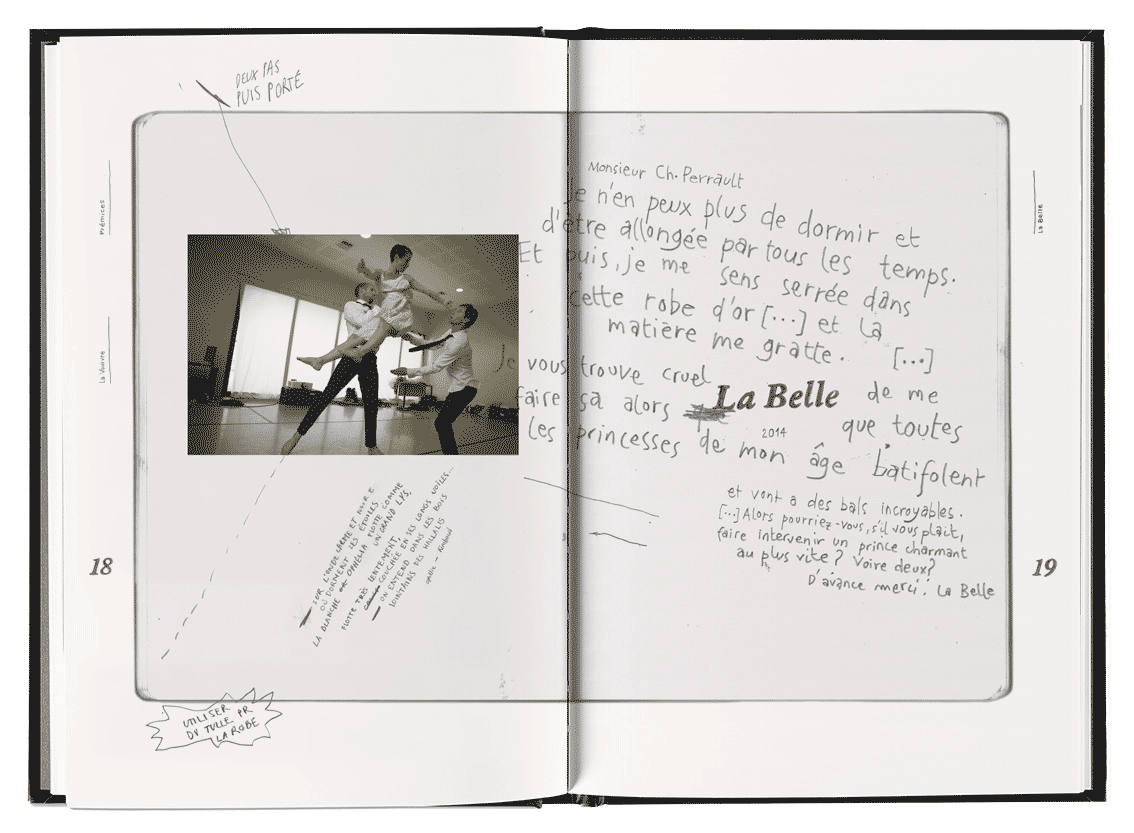 DEUX PAS
PUIS PORTÉ
Prémices
La Vouivre
18
SUR L'ONDE CALME ET NOIRE
OÙ DORMENT LES ÉTOILES
LA BLANCHE OPHÉLIA FLOTTE COMME
UN GRAND LYS,
FLOTTE TRÈS LENTEMENT,
COUCHÉE EN SES LONGS VOILES...
ON ENTEND DANS LES BOIS
LOINTAINS DES HALLALIS
Ophélie - Rimbaud
UTILISER
DU TULLE PR
LA ROBE
Monsieur Ch. Perrault
Je n'en peux plus de dormir et
d'être allongée par tous les temps.
Et puis, je me sens serrée dans
cette robe d'or [...] et la
matière me gratte. [...]
Je vous trouve cruel
La Belle de me
faire ça alors que toutes
2014
les princesses de mon âge batifolent
et vont a des bals incroyables.
[...] Alors pourriez-vous, s'il vous plaît,
faire intervenir un prince charmant
au plus vite ? Voire deux?
D'avance merci. La Belle
La Belle
19